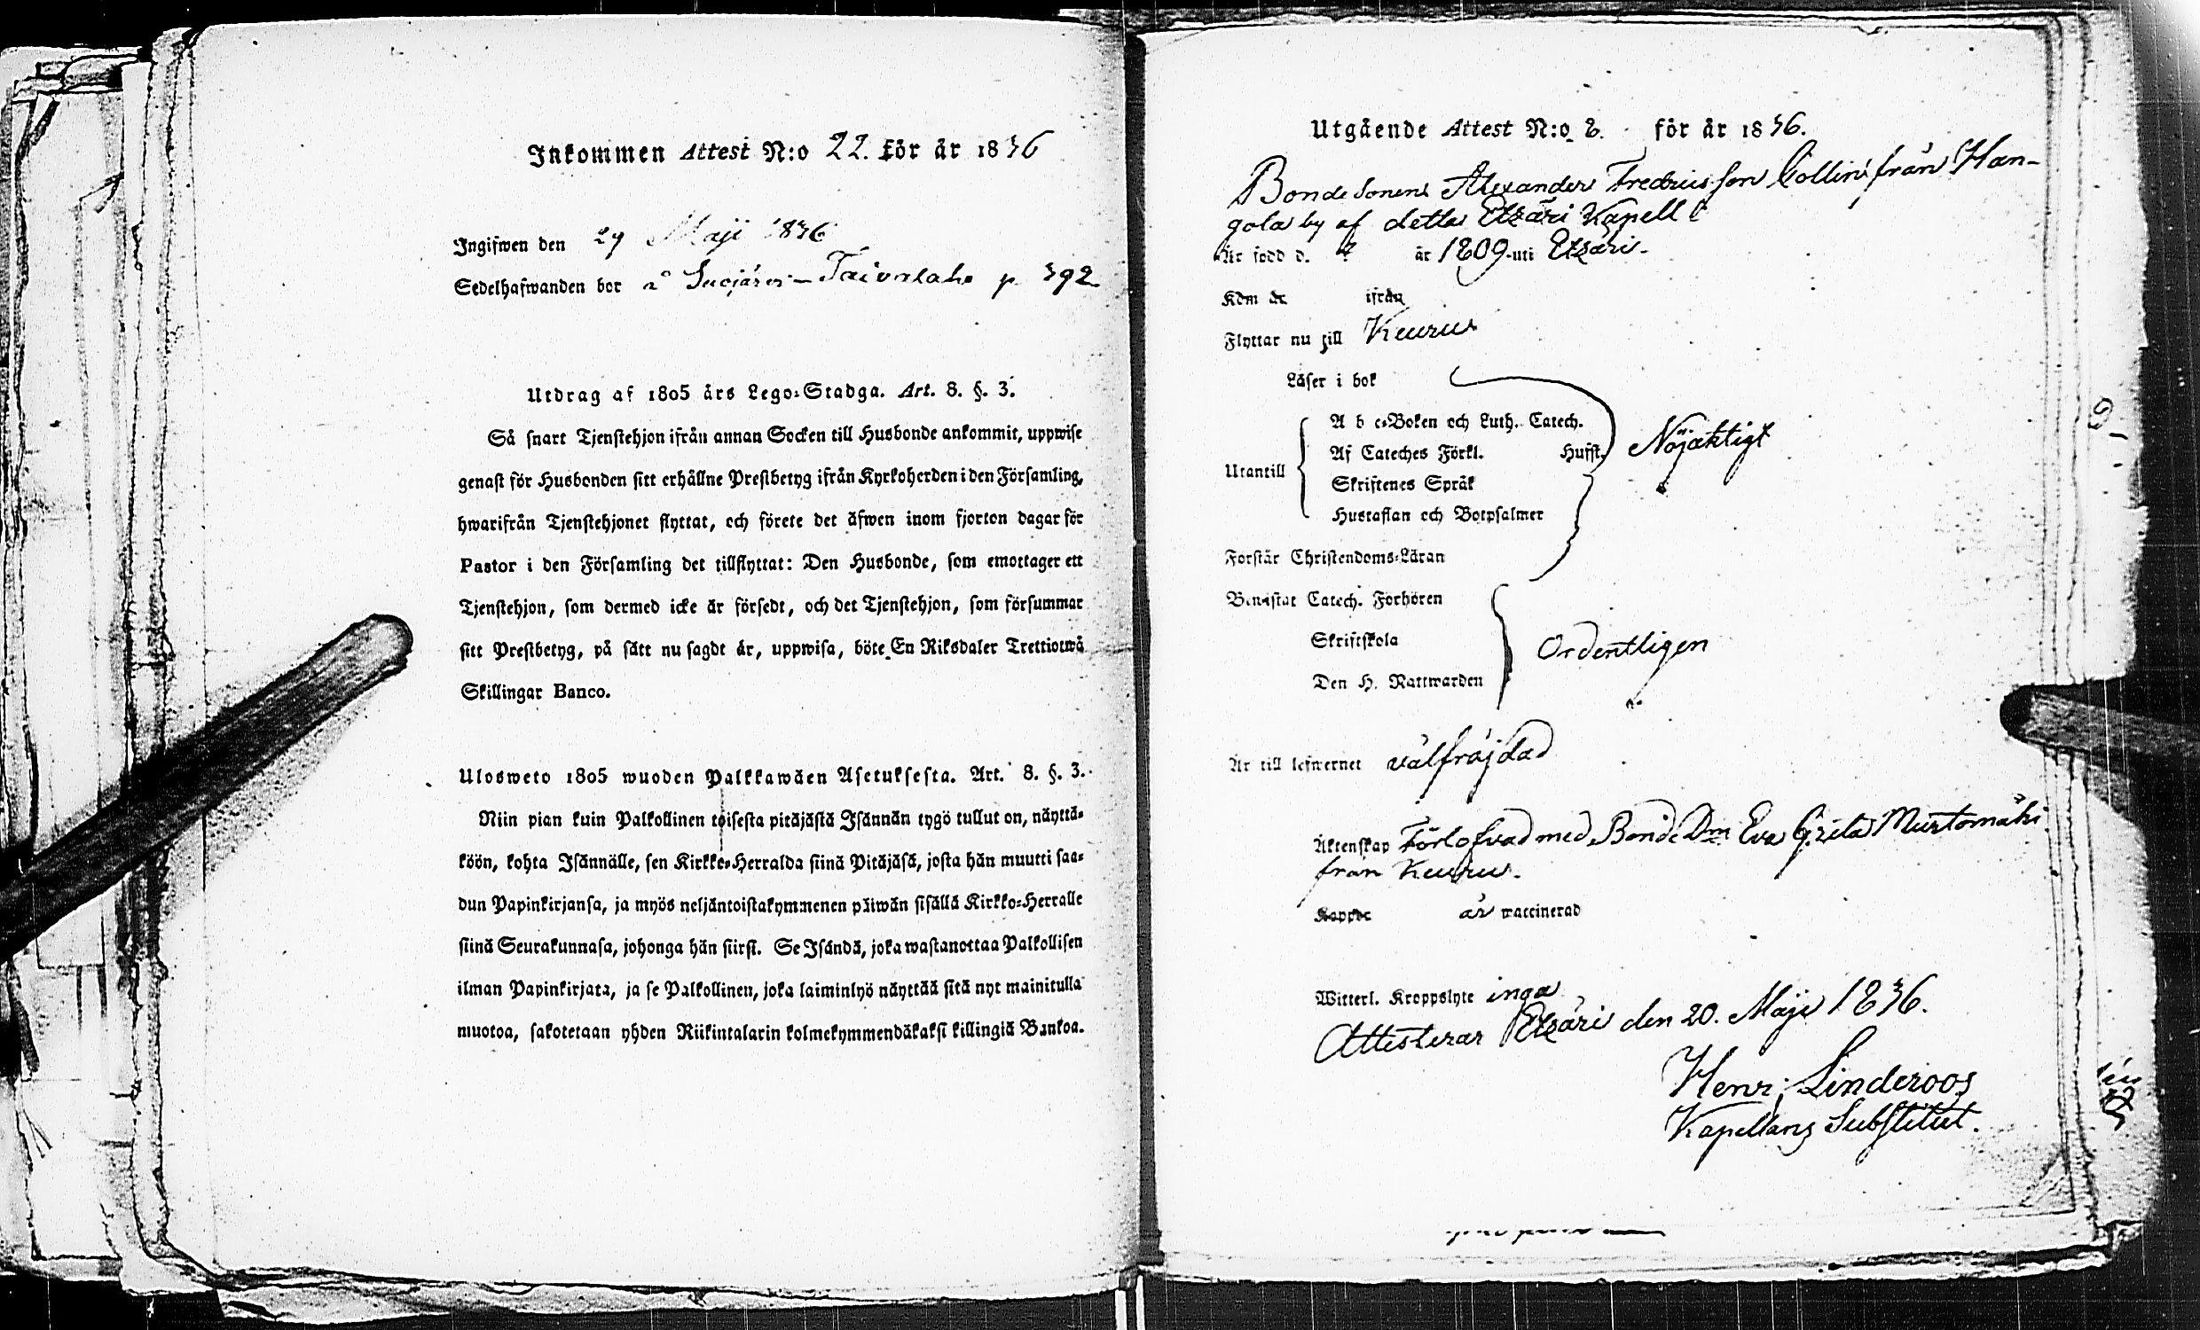 Inkommen Attest N:o 22. för år 1836
Ingifwen den 29 Maji 1836
Sedelhafwanden bor å Suojärvi-Taivalaho p. 392
Utdrag af 1805 års Lego-Stadga. Art. 8. §. 3.
Så snart Tjenstehjon ifrån annan Socken till Husbonde ankommit, uppwise
genast för Husbonden sitt erhållne Prestbetyg ifrån Kyrkoherden i den Församling,
hwarifrån Tjenstehjonet flyttat, och förete det äfwen inom fjorton dagar för
Pastor i den Församling det tillflyttat: Den Husbonde, som emottager ett
Tjenstehjon, som dermed icke är försedt, och det Tjenstehjon, som försummar
sitt Prestbetyg, på sätt nu sagdt är, uppwisa, böte En Riksdaler Trettiotwå
Skillingar Banco.
Ulosweto 1805 wuoden Palkkawäen Asetuksesta. Art. 8. §. 3.
Niin pian kuin Palkollinen toisesta pitäjästä Isännän tygö tullut on, näyttä-
köön, kohta Isännälle, sen Kirkko-Herralda siinä Pitäjäsä, josta hän muutti saa-
dun Papinkirjansa, ja myös neljäntoistakymmenen päiwän sisällä Kirkko-Herralle
siinä Seurakunnasa, johonga hän siirsi. Se Isändä, joka wastanottaa Palkollisen
ilman Papinkirjata, ja se Palkollinen, joka laiminlyö näyttää sitä nyt mainitulla
muotoa, sakotetaan yhden Riikintalarin kolmekymmendäkaksi killingiä Bankoa.
Utgående Attest N:o 8. för år 1836.
Bonde Sonen Alexander Fredricsson Collin från Han-
gola by af detta Etzäri Kapell
Är född d. ? år 1809 uti Etzäri.
Kom år ifrån
Flyttar nu till Keuru
Läser i bok
A b c-Boken och Luth. Catech.
Af Cateches Förkl. Husst. Nöjaktigt
Utantill
Skriftenes Språk
Hustaflan och Botpsalmer
Förstår Christendoms-Läran
Bewistat Catech. Förhören
Skriftskola Ordentligen
Den H. Nattwarden
Är till lefwernet välfräjdad
Äktenskap Förlofvad med Bonde Dn Eva Greta Murtomäki
från Keuru.
Koppor är waccinerad
Witterl. Kroppslyte inga
Attesterar Etzäri den 20. Maji 1836.
Henr. Linderoos
Kapellans Substitut.